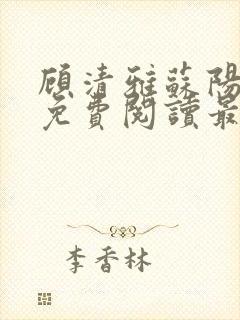 顾清雅蘇陽
免費閱讀最
李香林